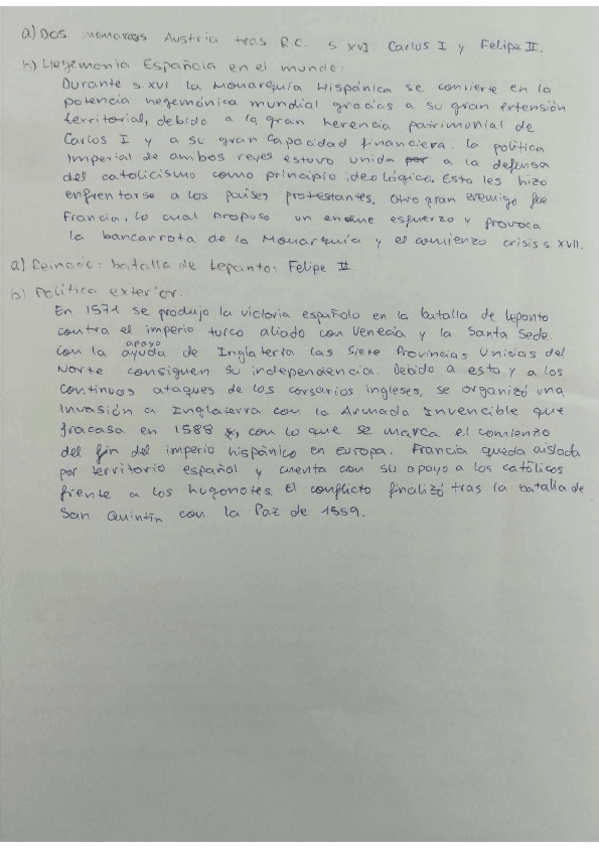 a) Dos monarcas Austria tras R.C. s. XVI Carlos I y Felipe II.
b) Hegemonía Española en el mundo:
Durante s. XVI la Monarquía Hispánica se convierte en la
potencia hegemónica mundial gracias a su gran extensión
territorial, debido a la gran herencia patrimonial de
Carlos I y a su gran capacidad financiera. La política
Imperial de ambos reyes estuvo unida a la defensa
del catolicismo como principio ideológico. Esto les hizo
enfrentarse a los países protestantes. Otro gran enemigo fue
Francia, lo cual propuso un enorme esfuerzo y provoca
la bancarrota de la Monarquía y el comienzo crisis s XVII.
a) Reinado: batalla de Lepanto: Felipe II.
b) Política exterior:
En 1571 se produjo la victoria español en la batalla de lepanto
contra el imperio turco aliado con Venecia y la Santa Sede.
Con la ayuda apoyo de Inglaterra las Siete Provincias Unidas del
Norte consiguen su independencia. Debido a esto y a los
continuos ataques de los corsarios ingleses, se organizó una
invasión a Inglaterra con la Armada Invencible que
fracasa en 1588 y, con lo que se marca el comienzo
del fin del imperio hispánico en Europa. Francia queda aislada
por territorio español y cuenta con su apoyo a los católicos
frente a los hugonotes. El conflicto finalizó tras la batalla de
San Quintín con la Paz de 1559.